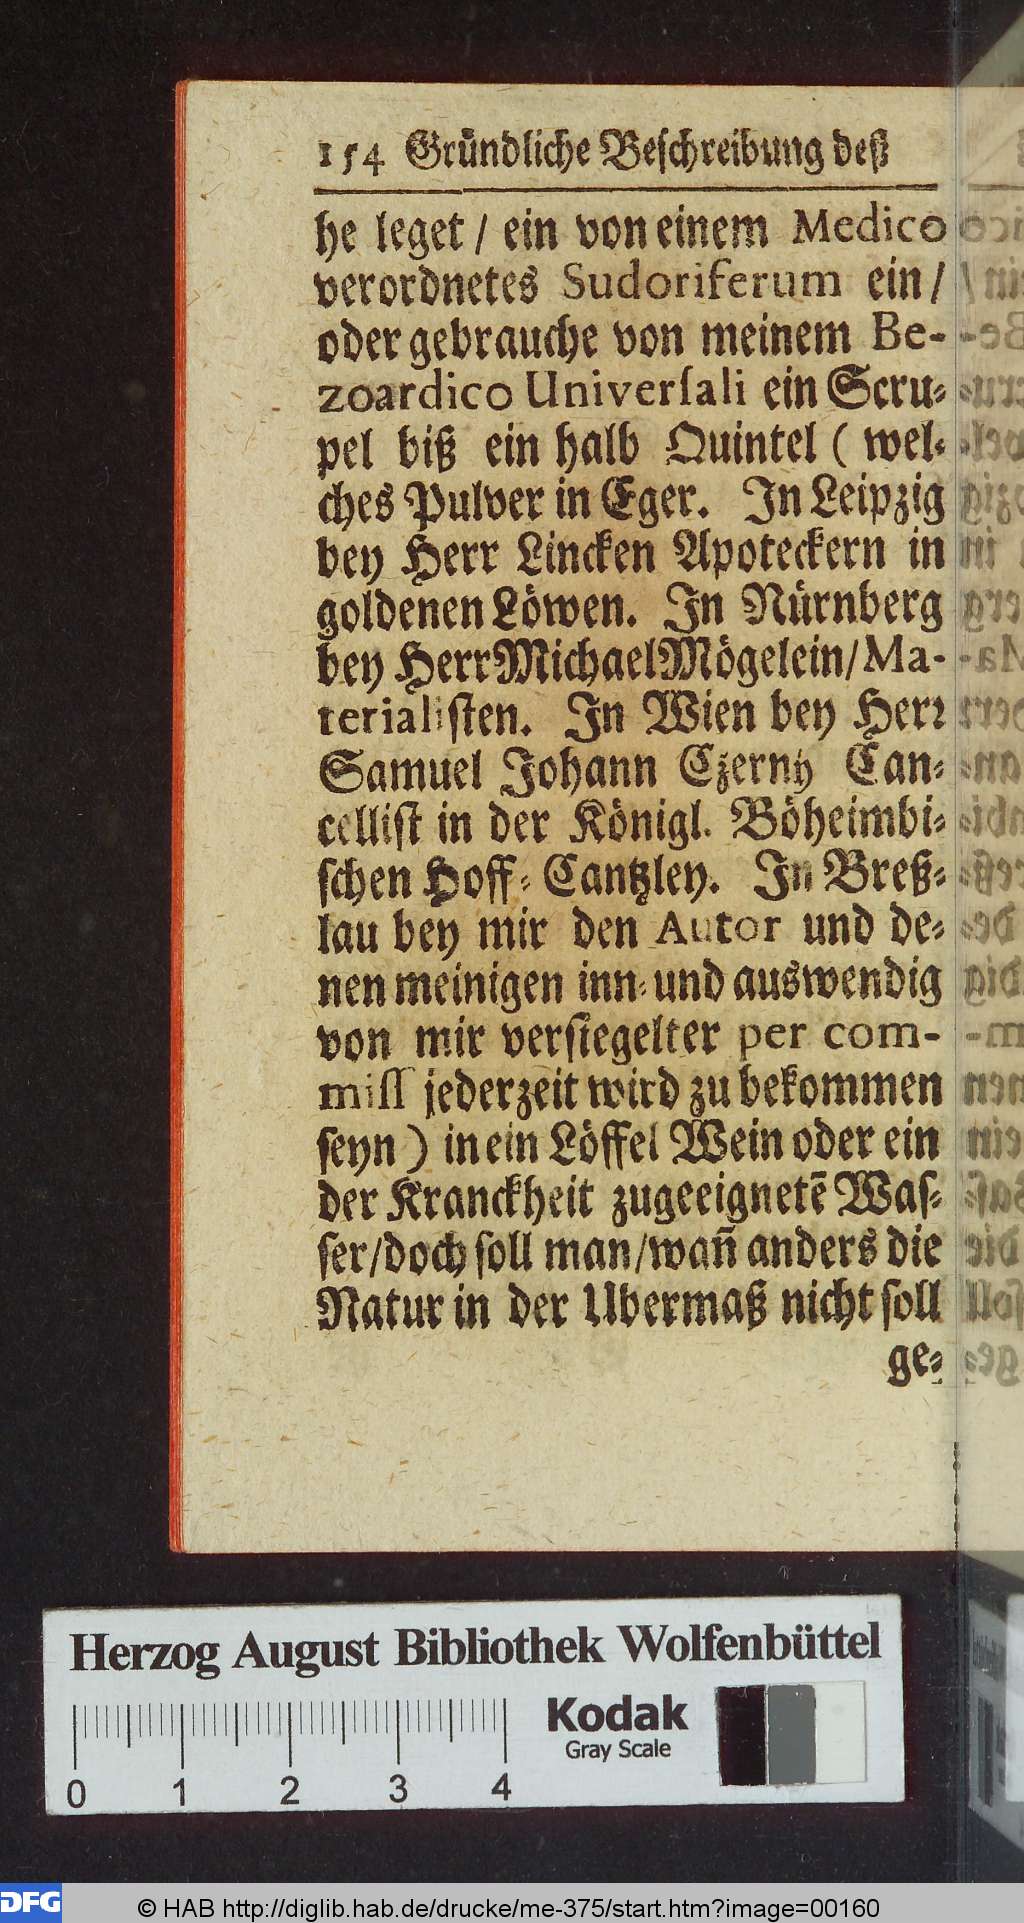 154 Gründliche Beschreibung deß
he leget / ein von einem Medico
verordnetes Sudoriferum ein /
oder gebrauche von meinem Be-
zoardico Univerſali ein Scru-
pel biß ein halb Quintel ( wel-
ches Pulver in Eger. In Leipzig
bey Herr Lincken Apoteckern in
goldenen Löwen. In Nürnberg
bey Herr Michael Mögelein / Ma-
terialiſten. In Wien bey Herr
Samuel Johann Czerny Can-
celliſt in der Königl. Böheimbi-
ſchen Hoff-Cantzley. In Breß-
lau bey mir den Autor und de-
nen meinigen inn- und auswendig
von mir verſiegelter per com-
miſſ jederzeit wird zu bekommen
ſeyn ) in ein Löffel Wein oder ein
der Kranckheit zugeeignetē Waſ-
ſer / doch ſoll man / wañ anders die
Natur in der Ubermaß nicht ſoll
ge-
Herzog August Bibliothek Wolfenbüttel
Kodak
Gray Scale
0 1 2 3 4
DFG © HAB http://diglib.hab.de/drucke/me-375/start.htm?image=00160